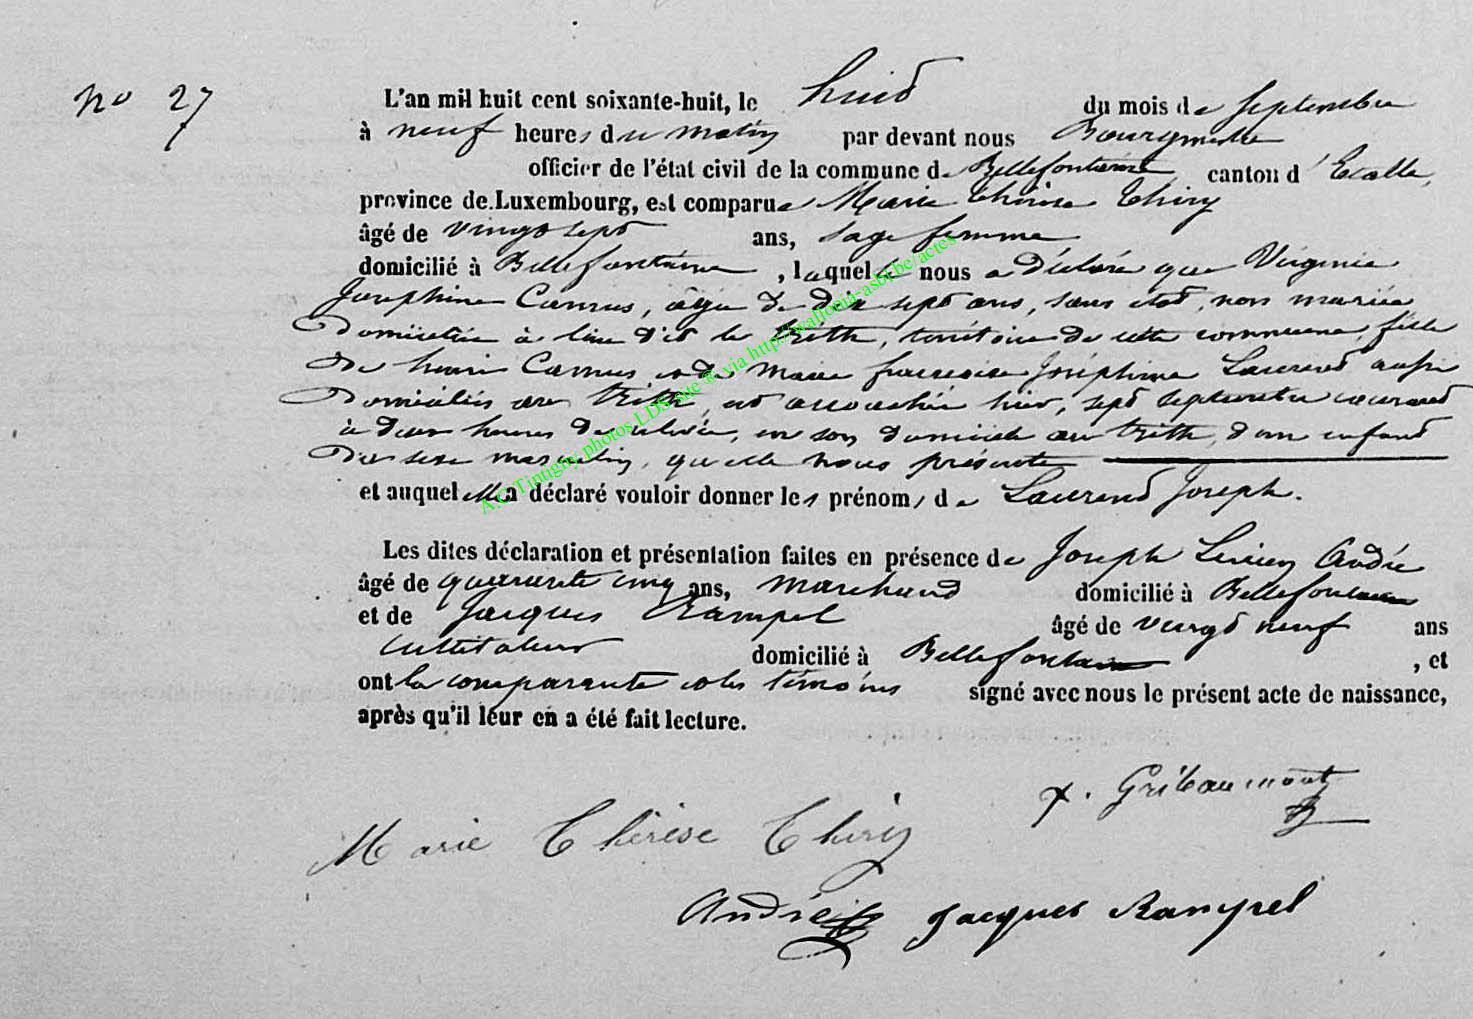 No 27
L'an mil huit cent soixante-huit, le huit du mois de Septembre
à neuf heures du matin par devant nous Bourgmestre
officier de l'état civil de la commune de Bellefontaine canton d'Etalle,
province de Luxembourg, est comparue Marie Thérèse Thiry
âgé de vingt sept ans, sage femme
domicilié à Bellefontaine, laquelle nous a déclaré que Virginie
Joséphine Camus, âgée de dix sept ans, sans état, non mariée
domiciliée à lieu dit le trith, territoire de cette commune, fille
de henri Camus et de Marie françoise Joséphine Laurend aussi
domiciliés au trith, est accouchée hier, sept septembre courant
à deux heures de relevée, en son domicile au trith, d'un enfant
du sexe masculin, qu'elle nous présente
et auquel elle a déclaré vouloir donner les prénoms de Laurend Joseph.
Les dites déclaration et présentation faites en présence de Joseph Lucien André
âgé de quarante cinq ans, marchand domicilié à Bellefontaine
et de Jacques Rampel âgé de vingt neuf ans
cultivateur domicilié à Bellefontaine, et
ont la comparante et les témoins signé avec nous le présent acte de naissance,
après qu'il leur en a été fait lecture.
A.C Tintigny photos LDS site ® via http://wallonia-asbl.be/actes
x. Gribaumont
Marie Thérèse Thiry
André Jacques Rampel